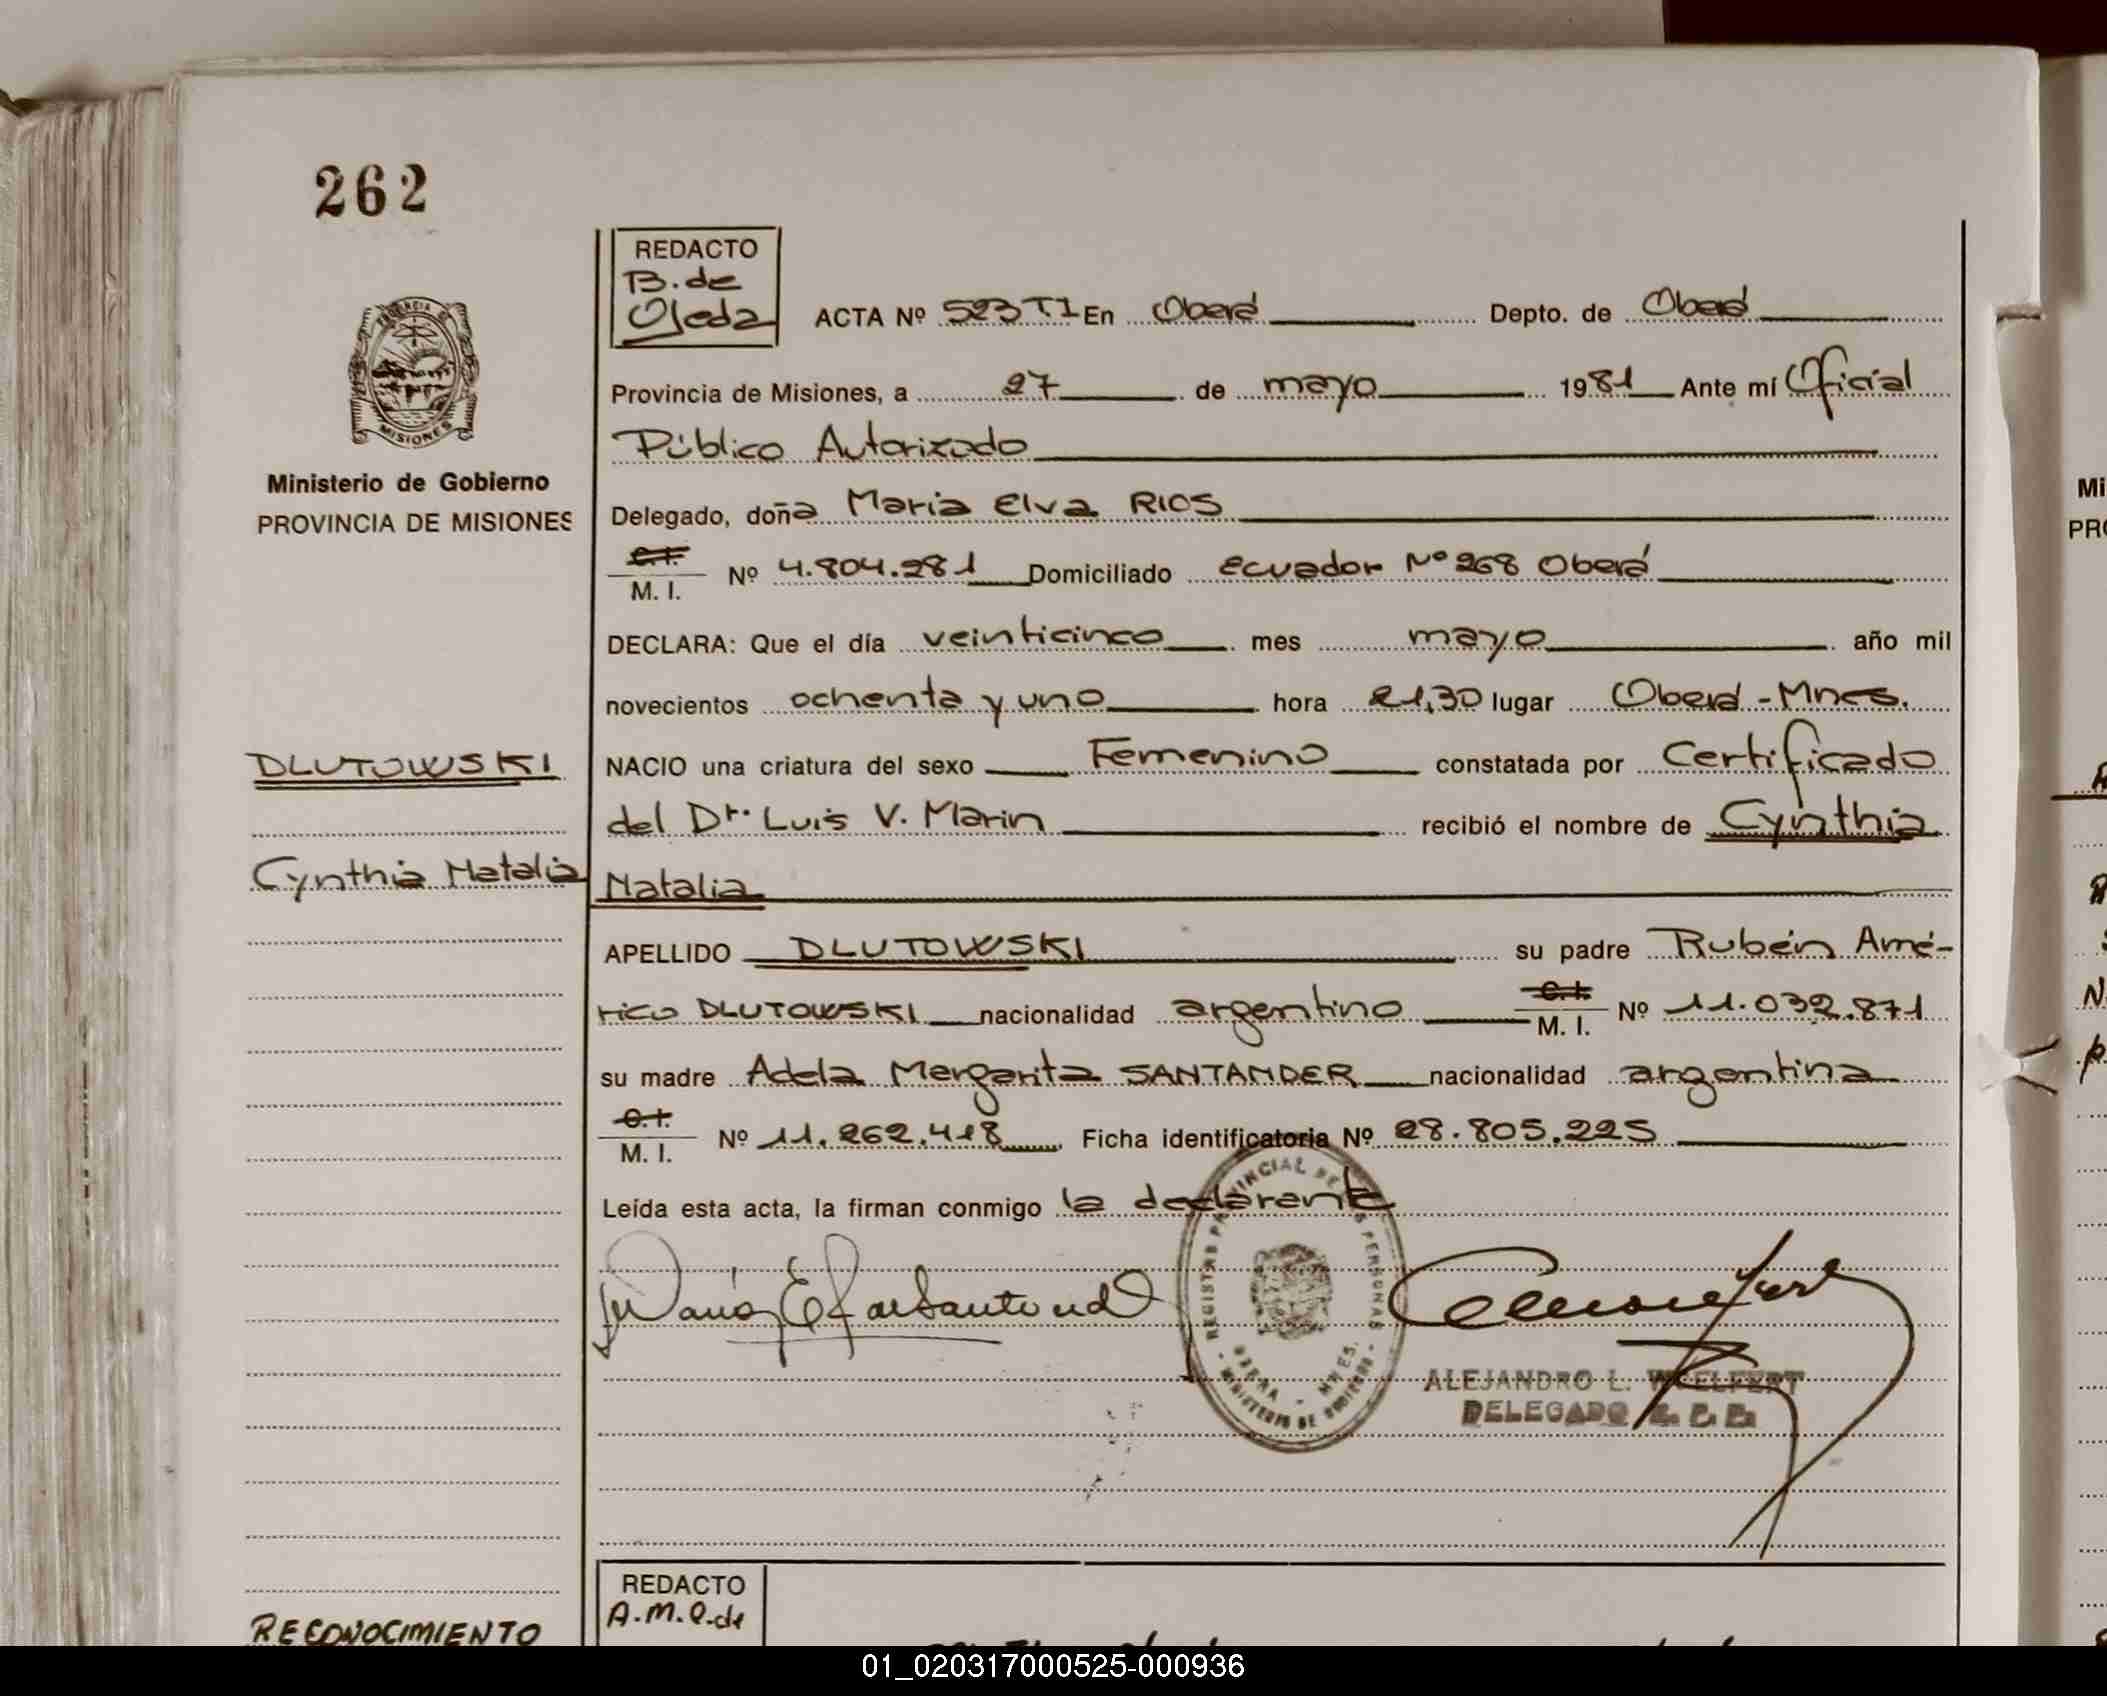 262
REDACTO
B. de
Ojeda
ACTA Nº 523 T1 En Oberá Depto. de Oberá
Provincia de Misiones, a 27 de mayo 1981 Ante mí Oficial
Público Autorizado
PROVINCIA DE
MISIONES
Ministerio de Gobierno
PROVINCIA DE MISIONES
Delegado, doña Maria Elva RIOS
C.I.
M. I. Nº 4.804.281 Domiciliado Ecuador Nº 268 Oberá
DECLARA: Que el día veinticinco mes mayo año mil
novecientos ochenta y uno hora 21,30 lugar Oberá - Mnes.
DLUTOWSKI
NACIO una criatura del sexo Femenino constatada por Certificado
del Dr. Luis V. Marin recibió el nombre de Cynthia
Cynthia Natalia
Natalia
APELLIDO DLUTOWSKI su padre Rubén Amé-
rico DLUTOWSKI nacionalidad argentino C.I. M. I. Nº 11.032.871
su madre Adela Margarita SANTANDER nacionalidad argentina
C.I.
M. I. Nº 11.262.418 Ficha identificatoria Nº 28.805.225
Leída esta acta, la firman conmigo la declarante
REGISTRO PROVINCIAL DE LAS PERSONAS
OBERA - MNES.
- MINISTERIO DE GOBIERNO -
ALEJANDRO L. WELFERT
DELEGADO
REDACTO
A.M.Q. de
RECONOCIMIENTO
Mi
PRO
01_020317000525-000936